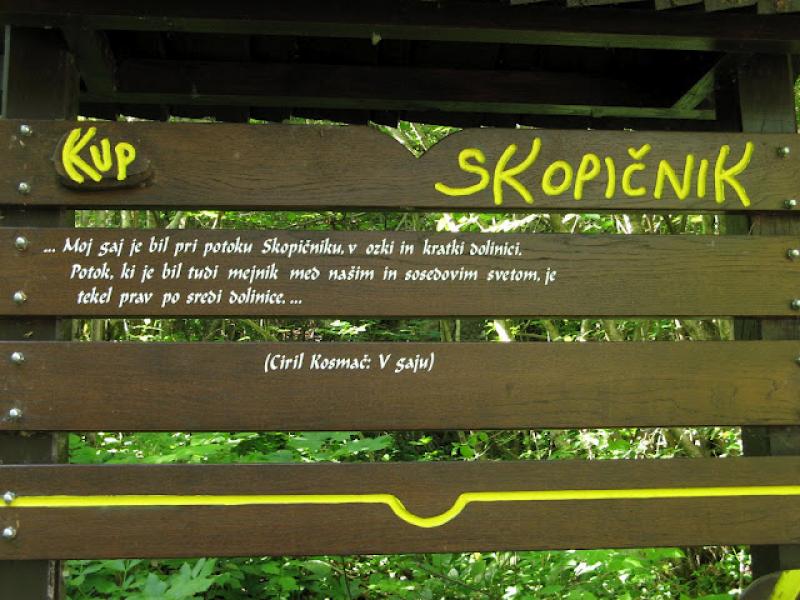 KUP
SKOPIČNIK
... Moj gaj je bil pri potoku Skopičniku, v ozki in kratki dolinici.
Potok, ki je bil tudi mejnik med našim in sosedovim svetom, je
tekel prav po sredi dolinice. ...
(Ciril Kosmač: V gaju)